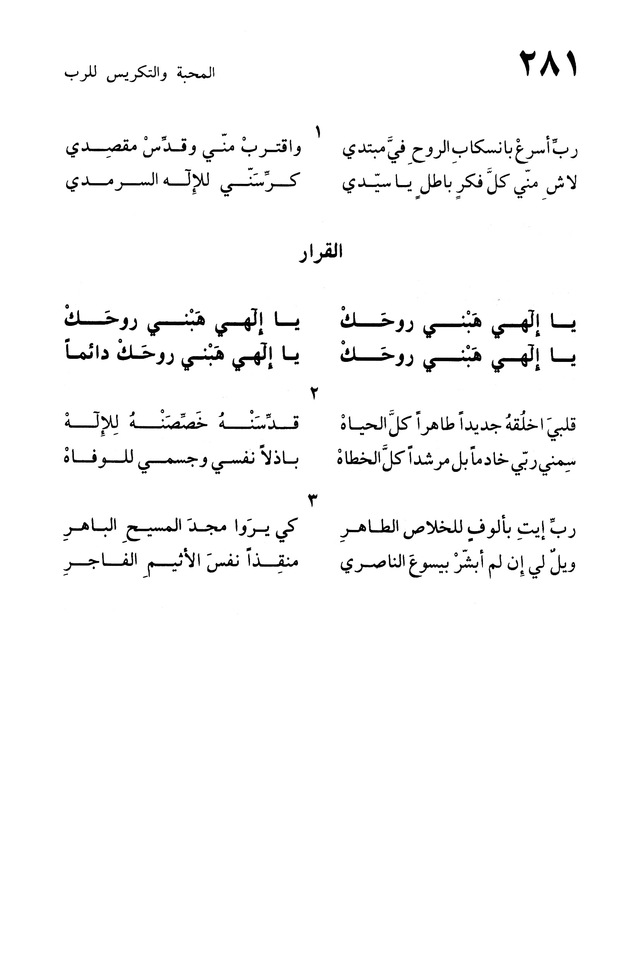 ٢٨١
المحبة والتكريس للرب
١
ربِّ أسرعْ بانسكابِ الروحِ فيَّ مبتدي واقتربْ منّي وقدِّسْ مقصدي
لاشِ منّي كلَّ فكرٍ باطلٍ يا سيّدي كرِّسَنّي للإلٰه السرمدي
القرار
يا إلٰهي هَبْني روحَكْ يا إلٰهي هَبْني روحَكْ
يا إلٰهي هَبْني روحَكْ يا إلٰهي هَبْني روحَكْ دائماً
٢
قلبيَ اخلُقهُ جديداً طاهراً كلَّ الحياهْ قدِّسَنْهُ خَصِّصَنْهُ لِلإلٰهْ
سِمني ربّي خادماً بل مرشداً كلَّ الخطاهْ باذلاً نفسي وجسمي للوفاهْ
٣
ربِّ إيتِ بألوفٍ للخلاص الطاهرِ كي يرَوا مجدَ المسيحِ الباهرِ
ويلٌ لي إن لم أبشّرْ بيسوعَ الناصري منقِذاً نفسَ الأثيمِ الفاجرِ